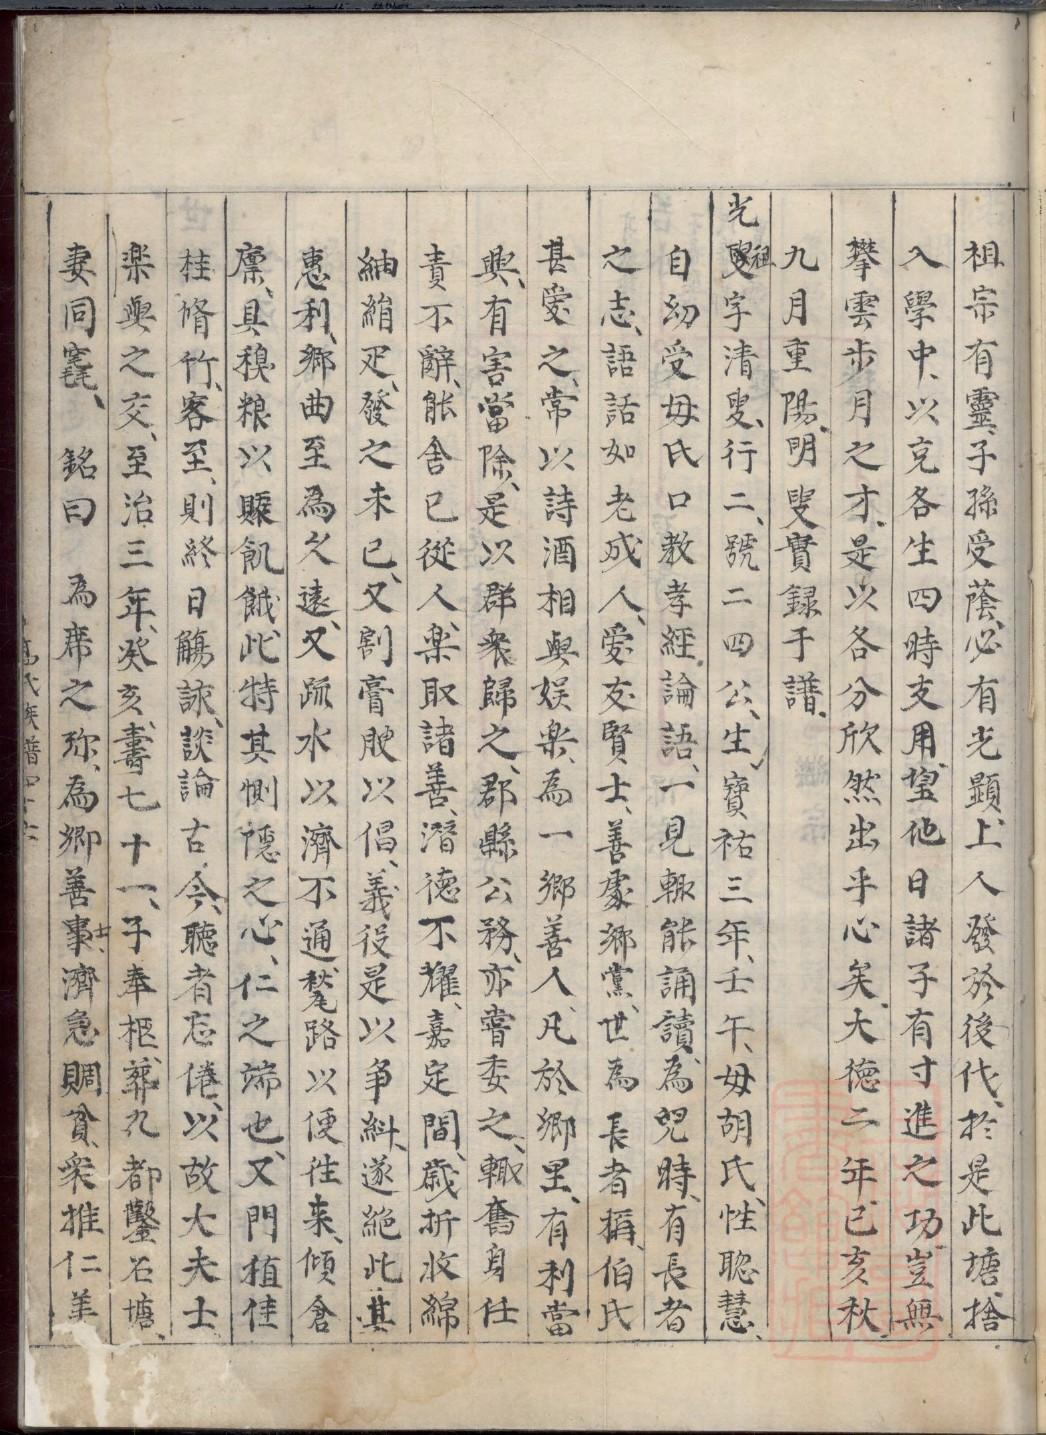 祖宗有靈、子孫受蔭、必有光顯、上人發於後代、於是此塘、捨
入學中、以克各生四時支用、望他日諸子有寸進之功、豈無
攀雲步月之才、是以各分欣然出乎心矣、大德二年、己亥秋、
九月重陽、明叟實録于譜、
光祖叟字清叟、行二、號二四公、生、寶祐三年、壬午、母胡氏、性聡慧、
自幼受母氏口教孝經、論語、一見輙能誦讀、為兒時、有長者
之志、語話如老成人、愛友賢士、善處郷黨、世為長者稱、伯氏
甚愛之、常以詩酒相與娱楽、為一郷善人、凡於郷里、有利當
興、有害當除、是以群衆歸之、郡縣公務、亦嘗委之、輙奮身任
責不辭、能舍已從人、楽取諸善、潛德不耀、嘉定間、歲折收綿
紬絹疋、發之未已、又割膏腴以倡、義役是以争糾、遂絶此其
惠利、郷曲至為久遠、又疏水以濟不通、甃路以便往来、傾倉
廪、具糗粮以賑飢餓、此特其惻隱之心、仁之端也、又門植佳
桂脩竹、客至、則終日觴詠、談論古今、聴者忘倦、以故大夫士
楽與之交、至治三年、癸亥、壽七十一、子奉柩葬九都鑿石塘、
妻同窀、銘曰　為席之珎、為郷善士事、濟急賙貧、衆推仁羊
氏族譜四十六